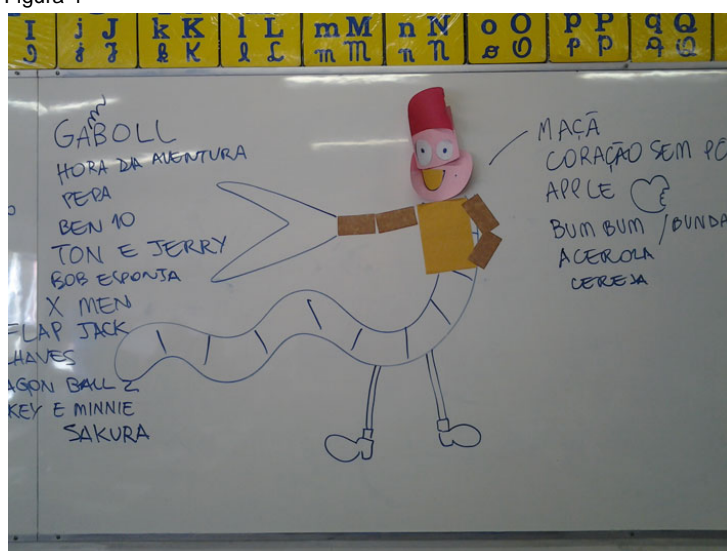 Figura 4
I j J k K l L m M n N o O p P q Q
I j J k K l L m M n N o O p P q Q
GABOLL
HORA DA AVENTURA
PEPA
BEN 10
TON E JERRY
BOB ESPONJA
X MEN
FLAP JACK
HAVES
AGON BALL Z
KEY E MINNIE
SAKURA
MAÇÃ
CORAÇÃO SEM
APPLE
BUM BUM / BUNDA
ACEROLA
CEREJA